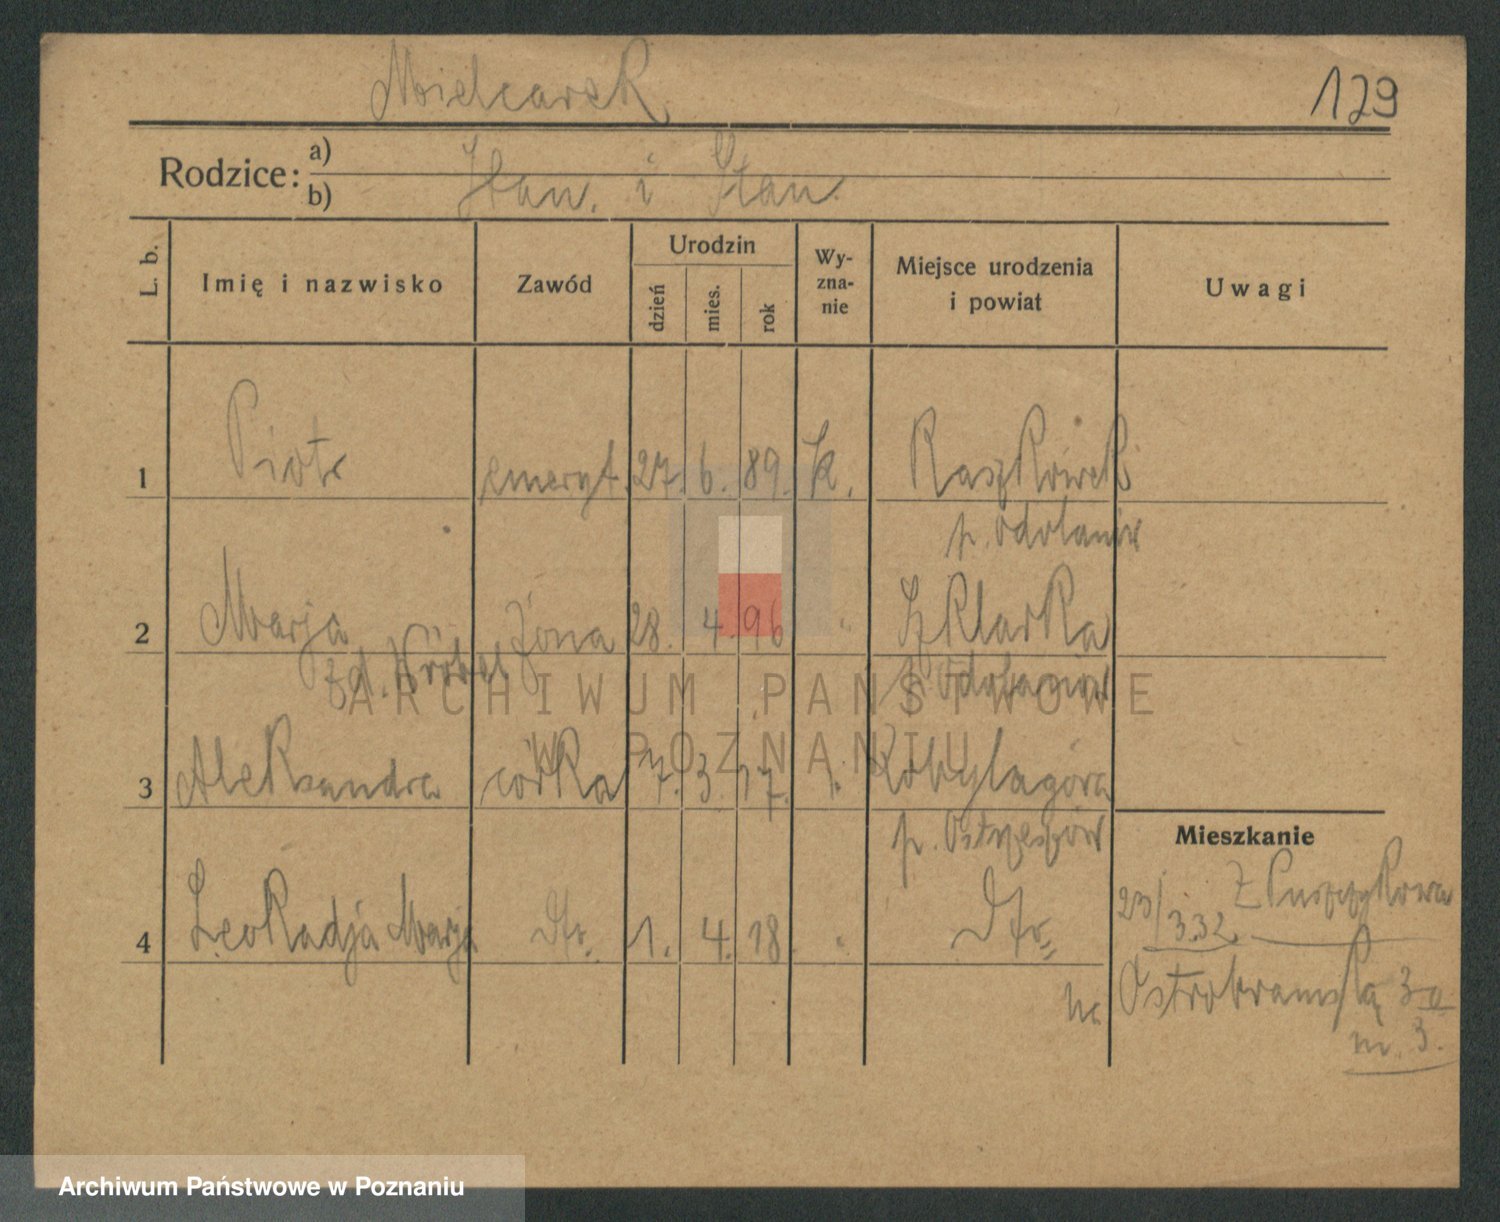 Mielcarek
129
Rodzice: a)
b) Stan. i Stan.
L. b.
Imię i nazwisko
Zawód
Urodzin
dzień
mies.
rok
Wy-
zna-
nie
Miejsce urodzenia
i powiat
Uwagi
1 Piotr emeryt. 27. 6. 89. k. Raszkówek
p. Odolanów
2 Marja żona 28. 4. 96 " Szklarka
zd. Wróbel p. Odolanów
ARCHIWUM PAŃSTWOWE
W POZNANIU
3 Aleksandra córka 7. 3. 17. Kobylagóra
p. Ostrzeszów
Mieszkanie
23/3.32. Z Puszczykowa
4 Leokadja Marja Dto. 1. 4. 18 " Dto.
na Ostrobramską 3a
m. 3.
Archiwum Państwowe w Poznaniu